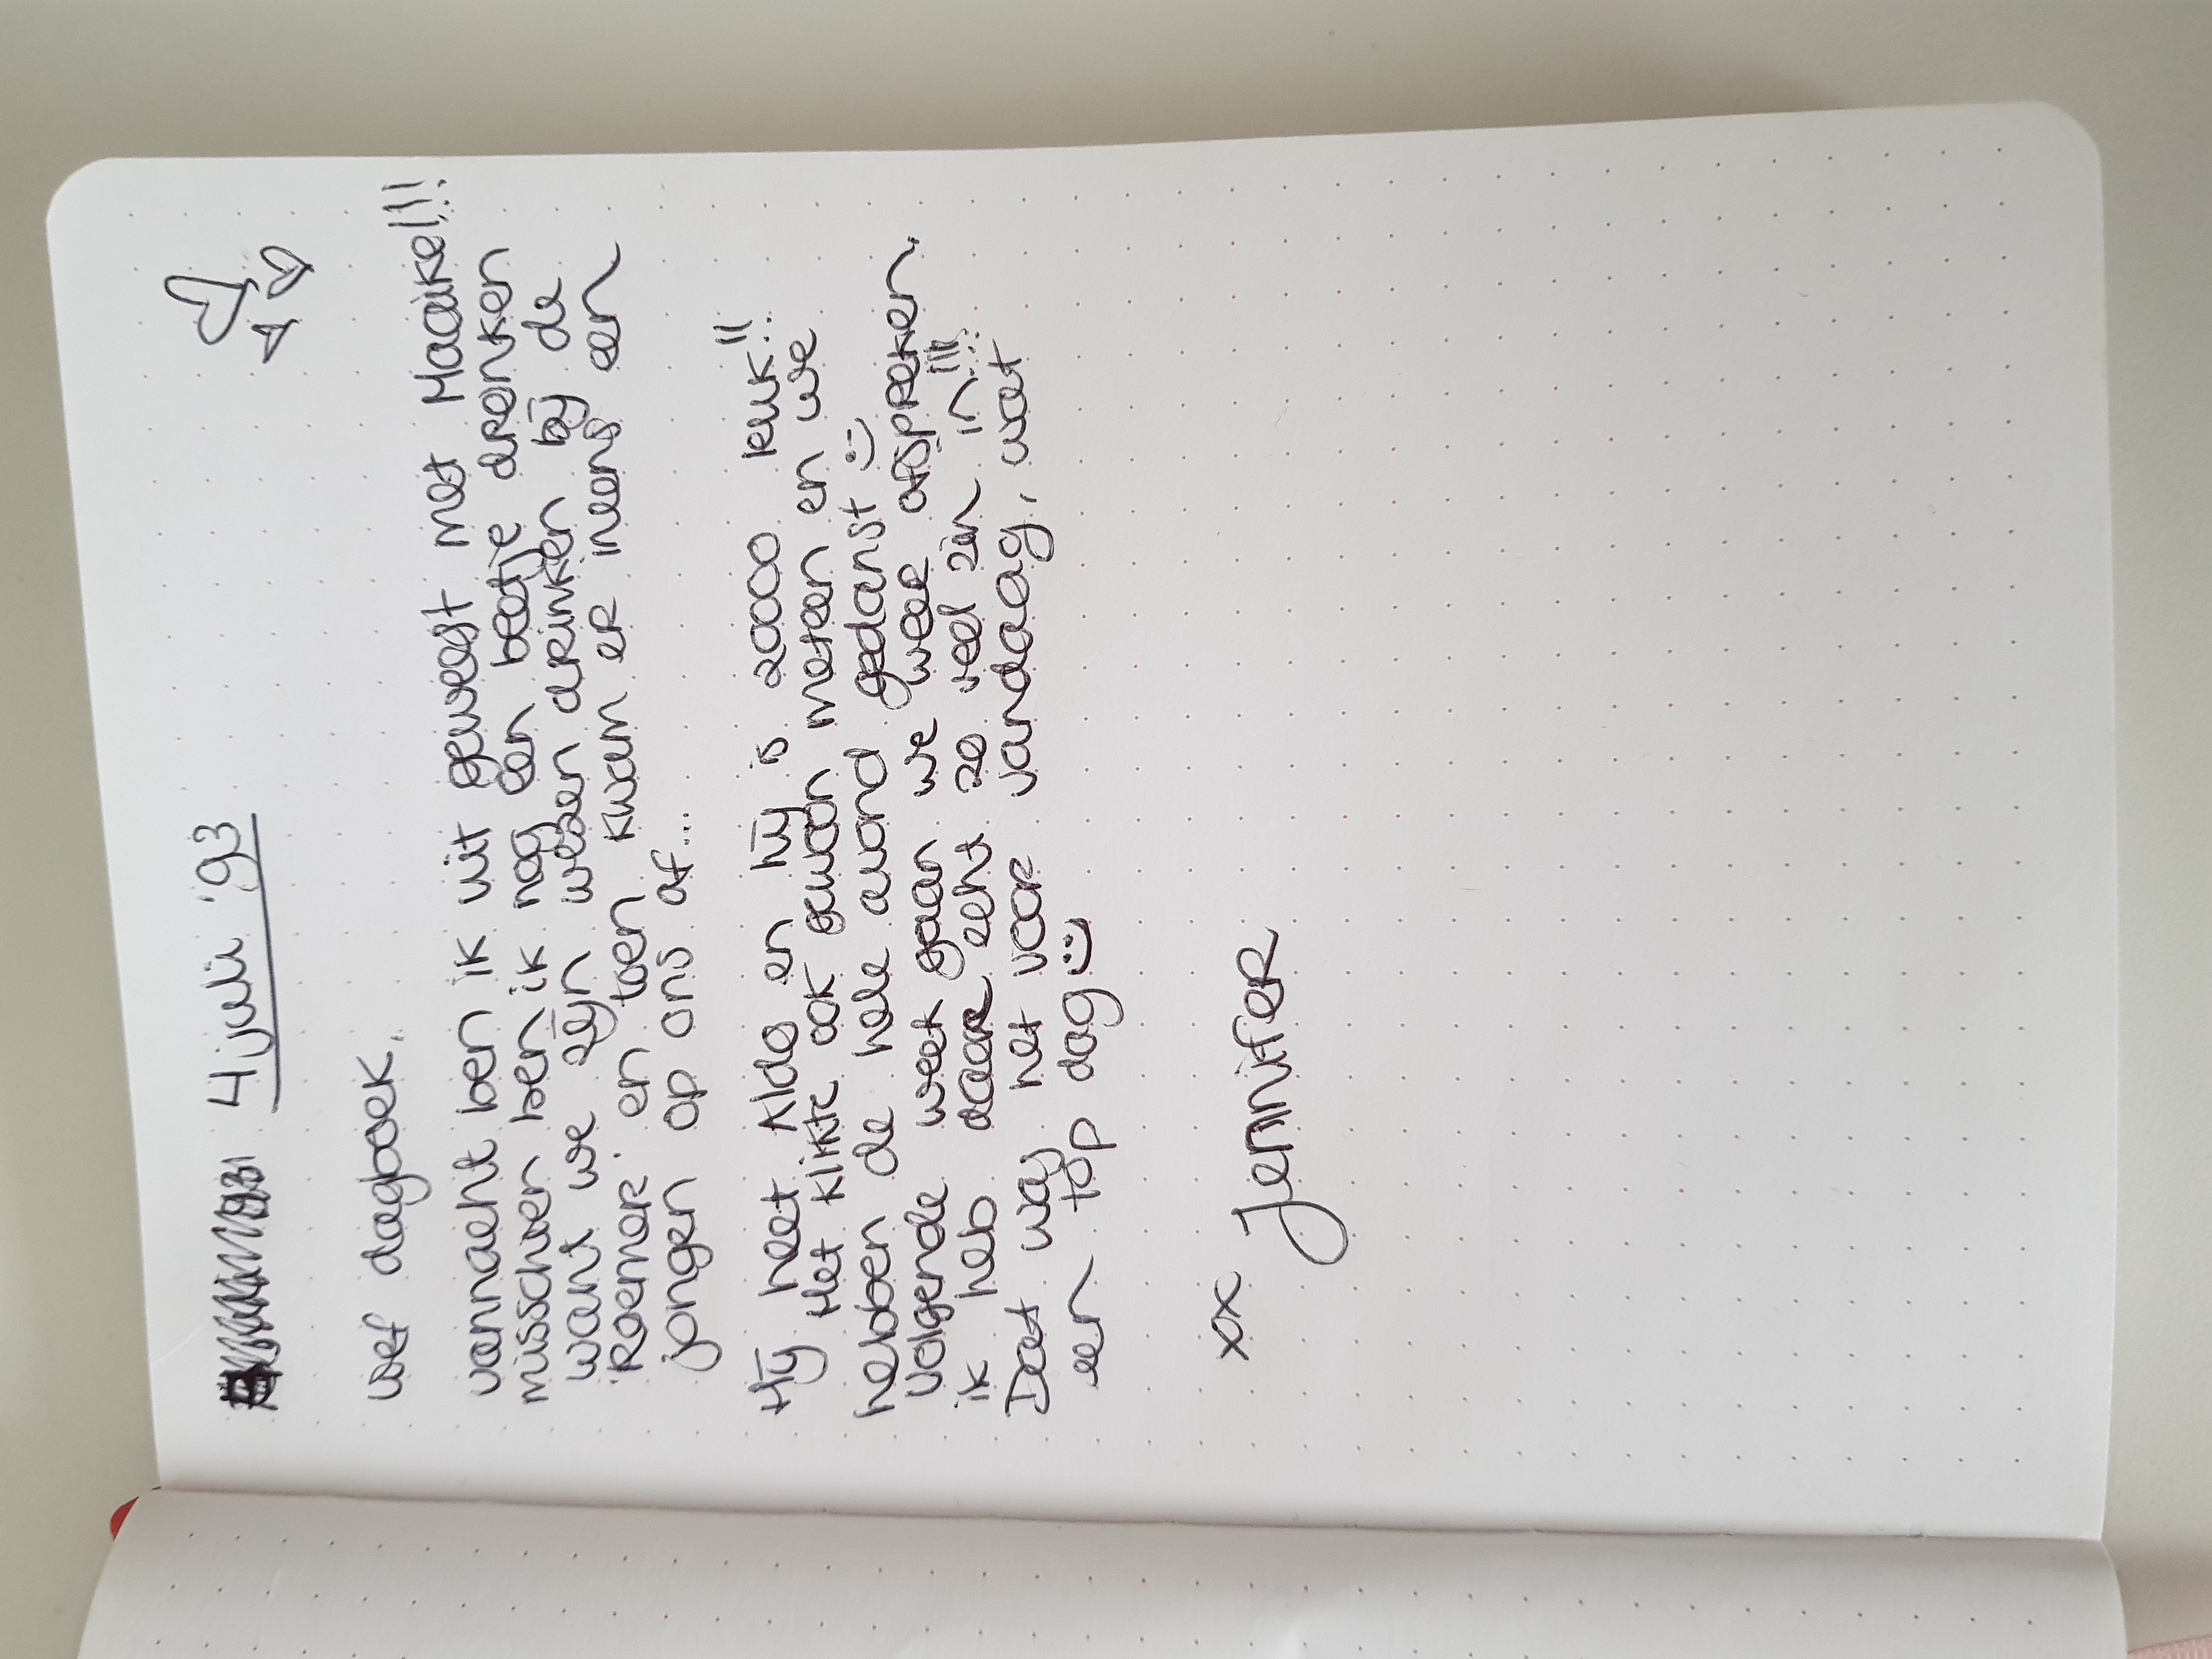 4 juli '93
Lief dagboek,
vannacht ben ik uit geweest met Maaike!!!
misschien ben ik nog een beetje dronken
want we zijn wezen drinken bij de
'Roemer' en toen kwam er ineens een
jongen op ons af...
Hij heet Aldo en hij is zoooo leuk!!
Het klikte ook gewoon meteen en we
hebben de hele avond gedanst :)
Volgende week gaan we weer afspreken,
ik heb daar echt zo veel zin in!!!
Dat was het voor vandaag, wat
een top dag :)
xx Jennifer